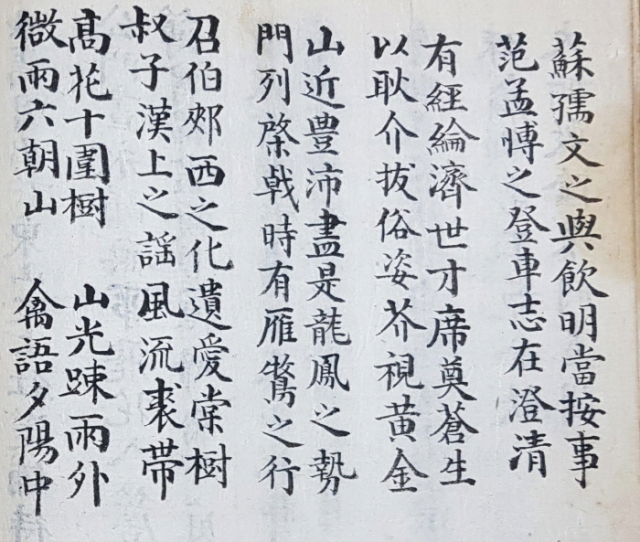 蘇孺文之與飲明當按事
范孟愽之登車志在澄清
有經綸濟世才席奠蒼生
以耿介拔俗姿芥視黃金
山近豊沛盡是龍鳳之勢
門列棨戟時有雁鶩之行
召伯郟西之化遺愛棠樹
叔子漢上之謠風流裘帶
髙花十圍樹 山光踈雨外
微雨六朝山 禽語夕陽中